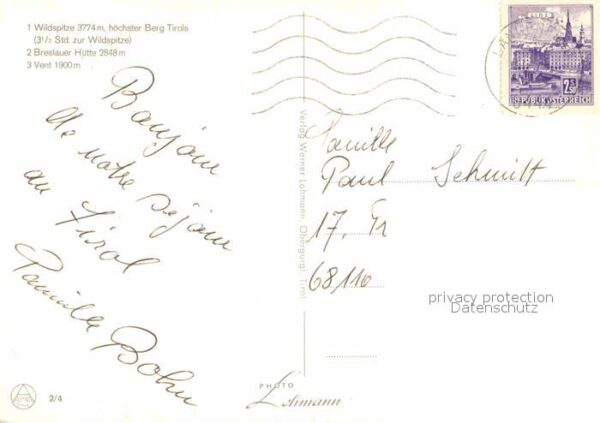 1 Wildspitze 3774 m, höchster Berg Tirols
(3½ Std. zur Wildspitze)
2 Breslauer Hütte 2848 m
3 Vent 1900 m
Bonjour
de notre séjour
au Tirol
Famille Bohn
2/4
Verlag Werner Lohmann, Obergurgl, Tirol
PHOTO
Lohmann
LINZ
REPUBLIK ÖSTERREICH
2.50
Famille
Paul Schmitt
17,
68,110
privacy protection
Datenschutz